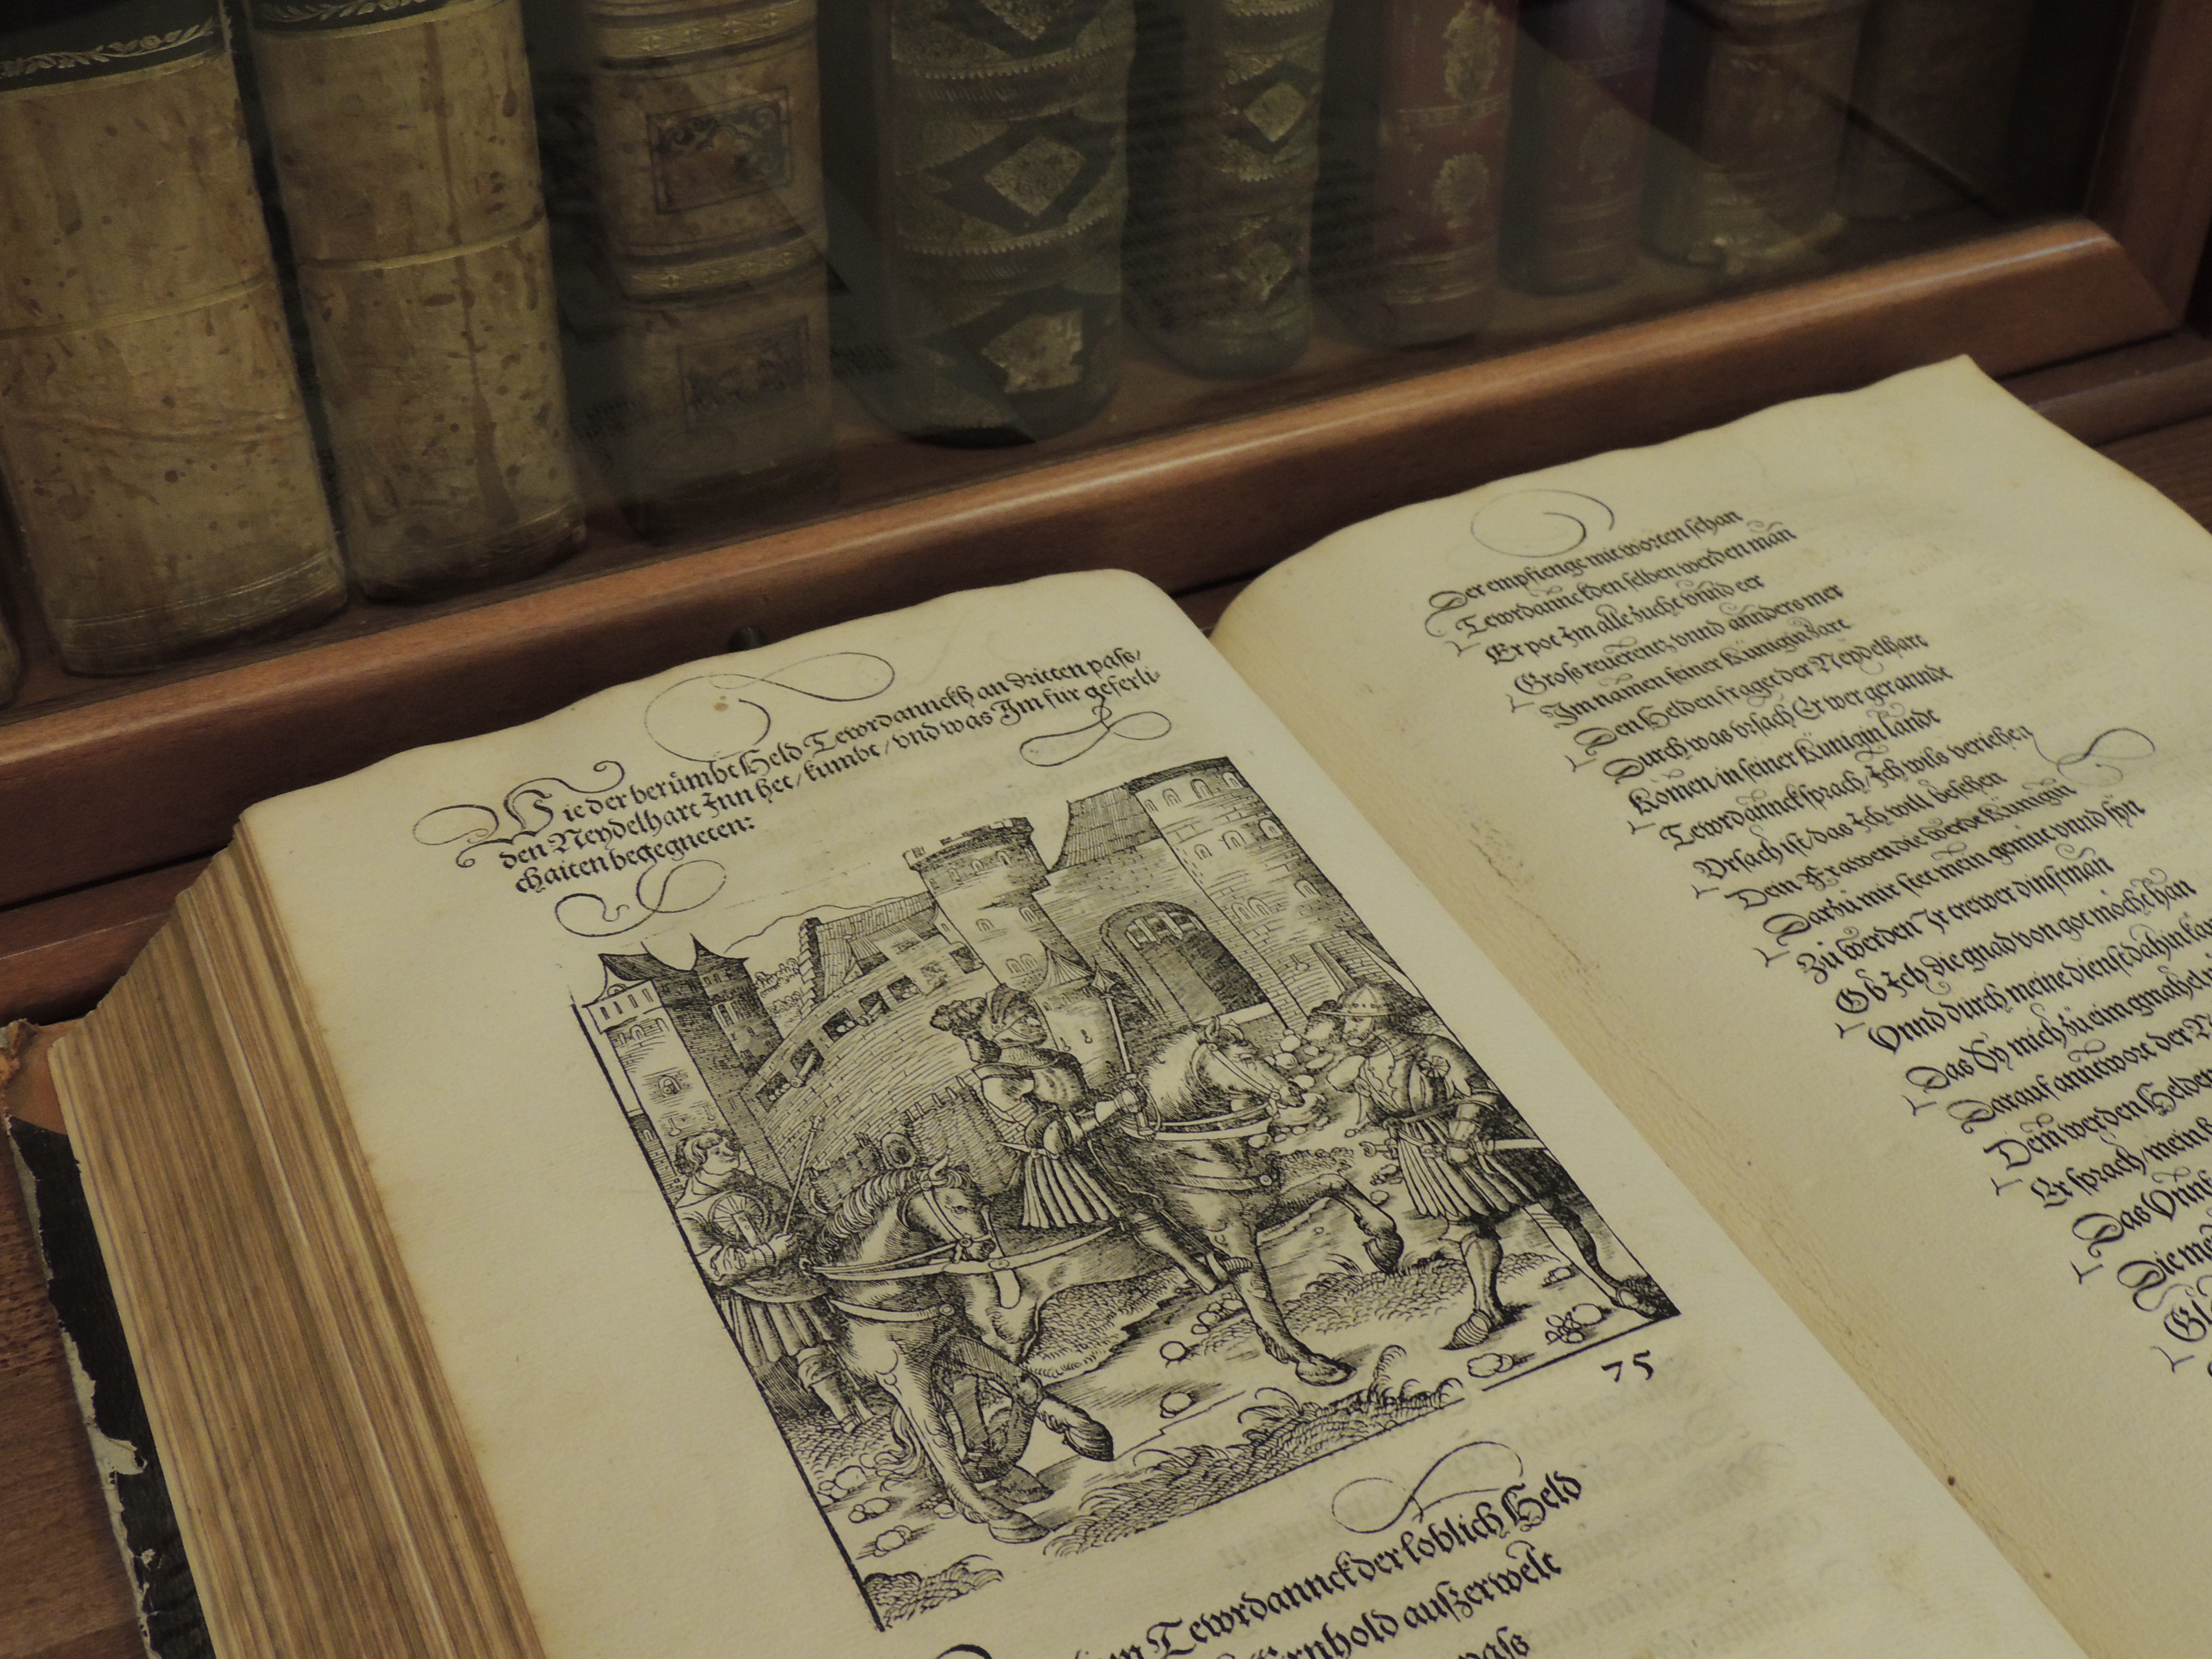 Wie der berümbt Held Tewrdannckh an dritten paſs/
den Neydelhart Inn het/ kumbt/ vnd was Im für geferli-
chaiten begegneten:
75
Tewrdannck der löblich Held
Ernhold auſzerwelt
paſs
Der empfienge mit worten ſchan
Tewrdannckden ſelben werden man
Er pot Im alle zucht vnnd eer
Groſs reuerentz vnnd annders mer
Im namen ſeiner Künigin zart
Den Helden fraget der Neydelhart
Durch was vrſach Er wer gerannde
Komen/ in ſeiner Künigin lande
Tewrdannck ſprach/ Ich wils veriehen
Vrſach iſt/ das Ich will beſehen
Dein Frawen die werde Künigin
Darzů mir ſtet mein gemüt vnnd ſyn
Zů werden Ir trewer dinſtman
Ob Ich die gnad von got möcht han
Vnnd durch meine dienſt dahin
Das Sy mich zů eim gmahel
Darauf anntwort der
Dem werden Helden
Er ſprach/ mein
Das
Die